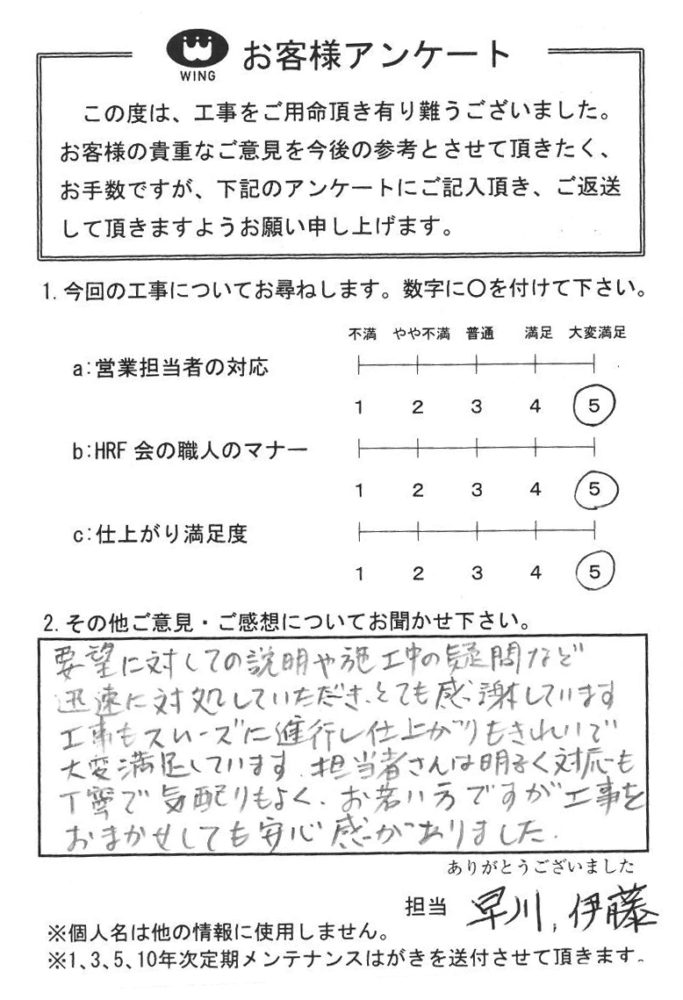 WING
お客様アンケート
この度は、工事をご用命頂き有り難うございました。
お客様の貴重なご意見を今後の参考とさせて頂きたく、
お手数ですが、下記のアンケートにご記入頂き、ご返送
して頂きますようお願い申し上げます。
1. 今回の工事についてお尋ねします。数字に〇を付けて下さい。
不満 やや不満 普通 満足 大変満足
a:営業担当者の対応
1 2 3 4 5
b:HRF 会の職人のマナー
1 2 3 4 5
c:仕上がり満足度
1 2 3 4 5
2. その他ご意見・ご感想についてお聞かせ下さい。
要望に対しての説明や施工中の疑問など
迅速に対処していただき、とても感謝しています
工事もスムーズに進行し仕上がりもきれいで
大変満足しています. 担当者さんは明るく対応も
丁寧で気配りもよく、お若い方ですが工事を
おまかせしても安心感がありました.
ありがとうございました
担当 早川, 伊藤
※個人名は他の情報に使用しません。
※1,3,5,10年次定期メンテナンスはがきを送付させて頂きます。